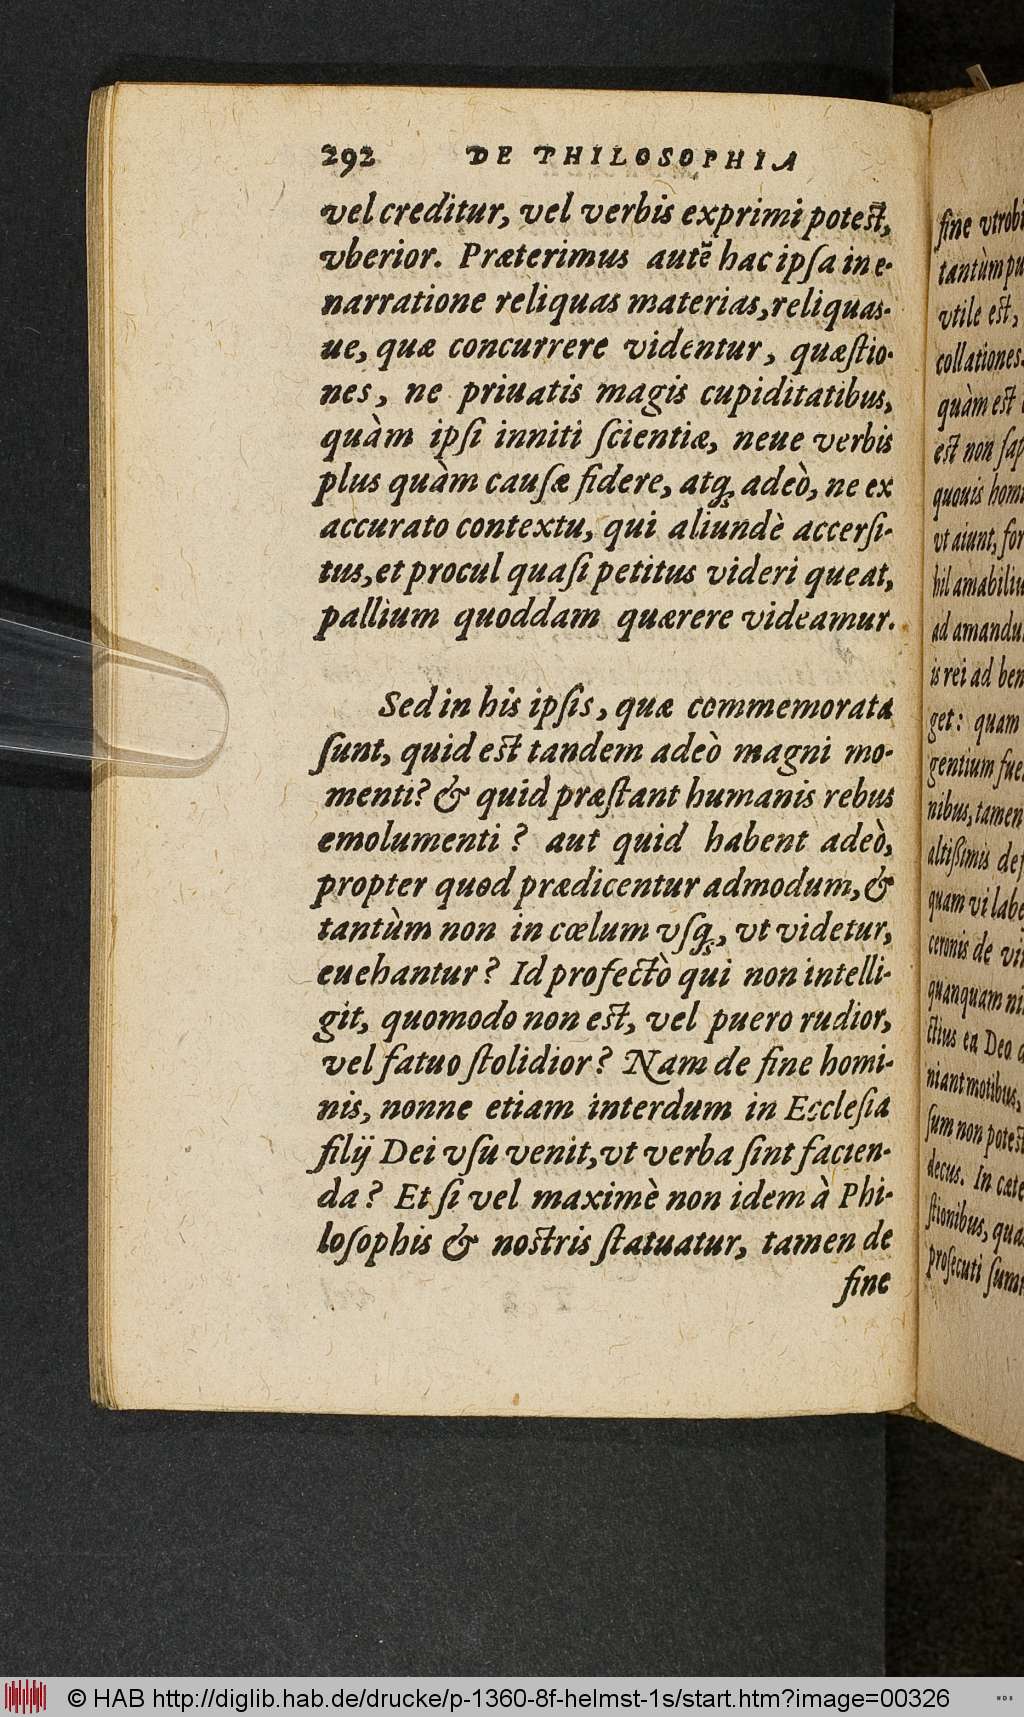 292 DE PHILOSOPHIA
vel creditur, vel verbis exprimi potest,
vberior. Præterimus autē hac ipſa in e-
narratione reliquas materias, reliquas-
ue, quæ concurrere videntur, quæſtio-
nes, ne priuatis magis cupiditatibus,
quàm ipſi inniti ſcientiæ, neue verbis
plus quàm cauſæ fidere, atq́ꝫ adeò, ne ex
accurato contextu, qui aliundè accerſi-
tus, et procul quaſi petitus videri queat,
pallium quoddam quærere videamur.
Sed in his ipſis, quæ commemorata
ſunt, quid est tandem adeò magni mo-
menti? & quid præſtant humanis rebus
emolumenti? aut quid habent adeò,
propter quod prædicentur admodum, &
tantùm non in cœlum vſq́ꝫ, vt videtur,
euehantur? Id profectò qui non intelli-
git, quomodo non est, vel puero rudior,
vel fatuo ſtolidior? Nam de fine homi-
nis, nonne etiam interdum in Eccleſia
filij Dei vſu venit, vt verba ſint facien-
da? Et ſi vel maximè non idem à Phi-
loſophis & nostris ſtatuatur, tamen de
fine
fine vtrobi
tantùm pu
vtile est,
collationes
quàm est
est non ſap
quouis homi
vt aiunt, for
hil amabiliu
ad amandu
is rei ad ben
get: quam
gentium fue
nibus, tamen
altißimis deſ
quam vi labe
ceronis de vir
quanquam ni
ctius ea Deo
niant motibus,
ſum non potest
decus. In cæte
ſtionibus, qua
proſecuti ſum
© HAB http://diglib.hab.de/drucke/p-1360-8f-helmst-1s/start.htm?image=00326